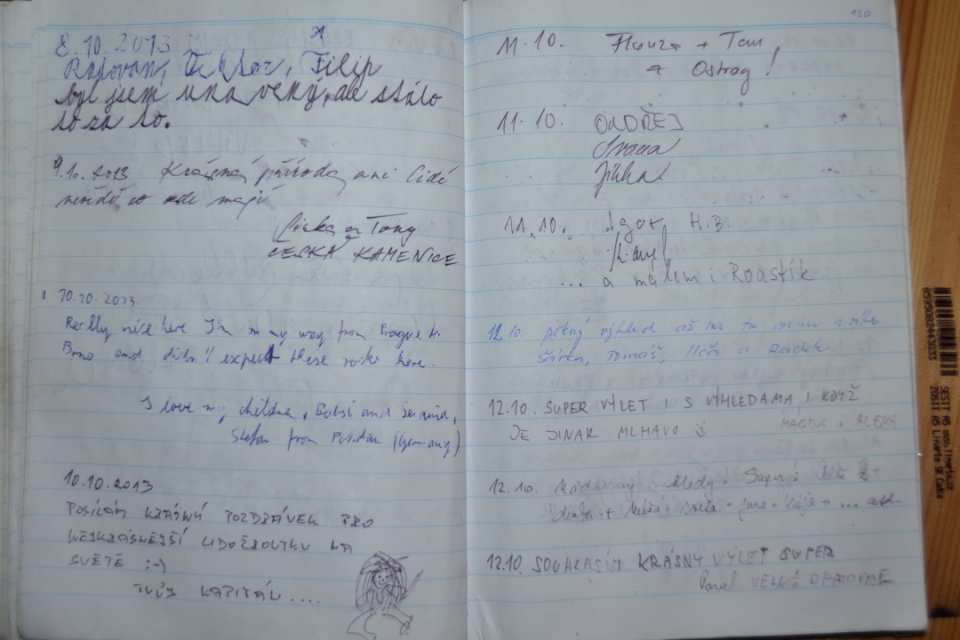 8.10.2013
Radovan, Filip
byl jsem unavený, ale stálo
to za to.
9.10.2013 Krásná příroda, ani lidé
neví co zde mají
a Tony
ČESKÁ KAMENICE
10.10.2013
Really nice here I'm on my way from Prague to
Brno and didn't expect these rocks here.
I love my children, and
Stefan from Potsdam (Germany)
10.10.2013
POSÍLÁM KRÁSNÝ POZDRÁVEK PRO
NEJKRÁSNĚJŠÍ LIDOŽROUTKU NA
SVĚTĚ :-)
TVŮJ KAPITÁN ....
120
11.10. Honza + Tom
z Ostrog!
11.10. ONDŘEJ
Ivana
Jitka
11.10. Igor H.B.
Karel
... a málem i Roastík
12.10. pěkný výhled až na tu
Šárka, Tomáš, a Radek
12.10. SUPER VÝLET I S VÝHLEDAMA I KDYŽ
JE JINAK MLHAVO MAGDA + ALENA
12.10. Nádherný Super
+ + + + ... atd.
12.10. SOUHLASÍM KRÁSNÝ VÝLET SUPER
Pavel VELKÉ OPATOVICE
SEŠIT A5 www.linarts.cz
ZOSIT A5 Linarts SK Česko